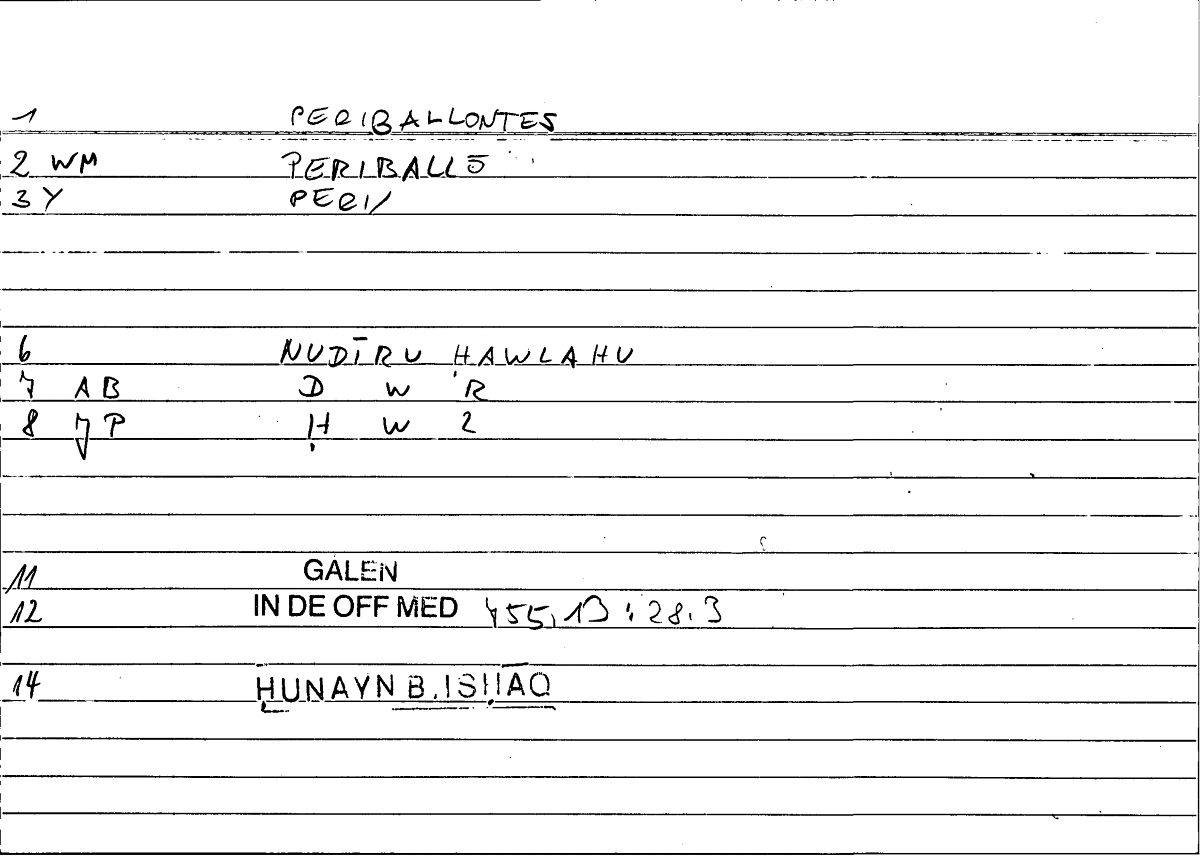 1 PERIBALLONTES
2 WM PERIBALLŌ
3 Y PERI/
6 NUDĪRU ḤAWLAHU
7 AB D W R
8 JP Ḥ W 2
11 GALEN
12 IN DE OFF MED 455,13 : 28.3
14 ḤUNAYN B. ISḤĀQ